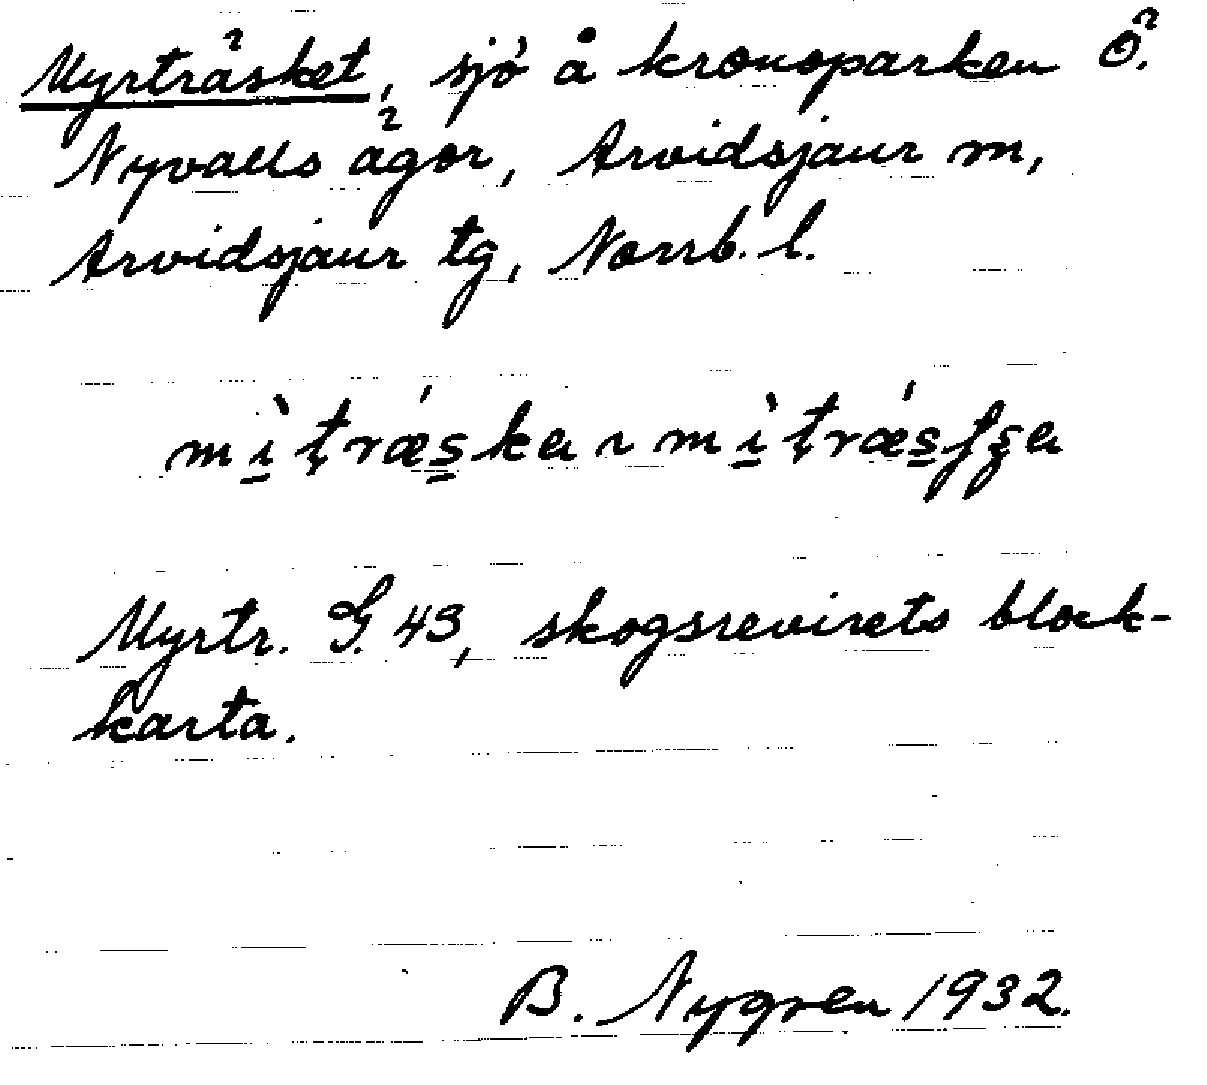 Myrträsket, sjö å kronoparken Ö.
Nyvalls ägor, Arvidsjaur m,
Arvidsjaur tg, Norrb. l.
Myrtr. G. 43, skogsrevirets block-
karta.
B. Nygren 1932.